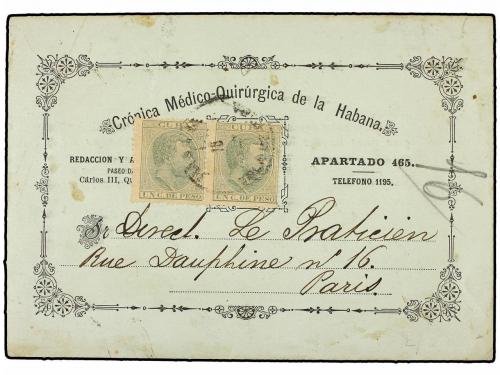 Crónica Médico-Quirúrgica de la Habana.
CUBA
CUBA
UN C. DE PESO
UN C. DE PESO
REDACCION Y A
PASEO DE
Cárlos III, Q
APARTADO 465.
TELEFONO 1195.
Sr Direct. Le Praticien
Rue Dauphine nº 16
Paris.